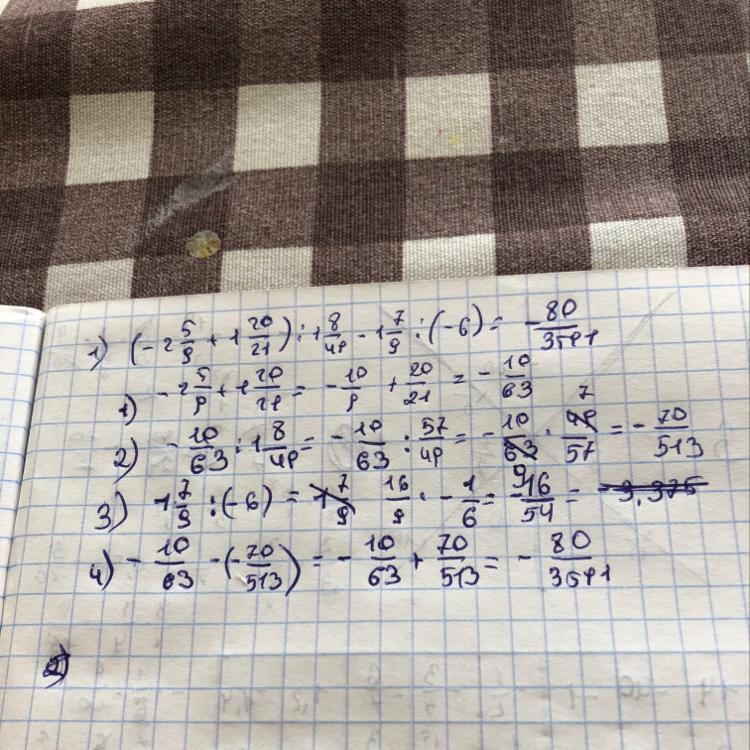 1) (-2 5/9 + 1 20/21) : 1 8/49 - 1 7/9 : (-6) = - 80/3591
1) -2 5/9 + 1 20/21 = - 10/9 + 20/21 = - 10/63
2) - 10/63 : 1 8/49 = - 10/63 : 57/49 = - 10/63 9 · 49/57 7 = - 70/513
3) 1 7/9 : (-6) = 1 7/9 16/9 · - 1/6 = - 16/54 = -3,375
4) - 10/63 - (- 70/513) = - 10/63 + 70/513 = - 80/3591
2)